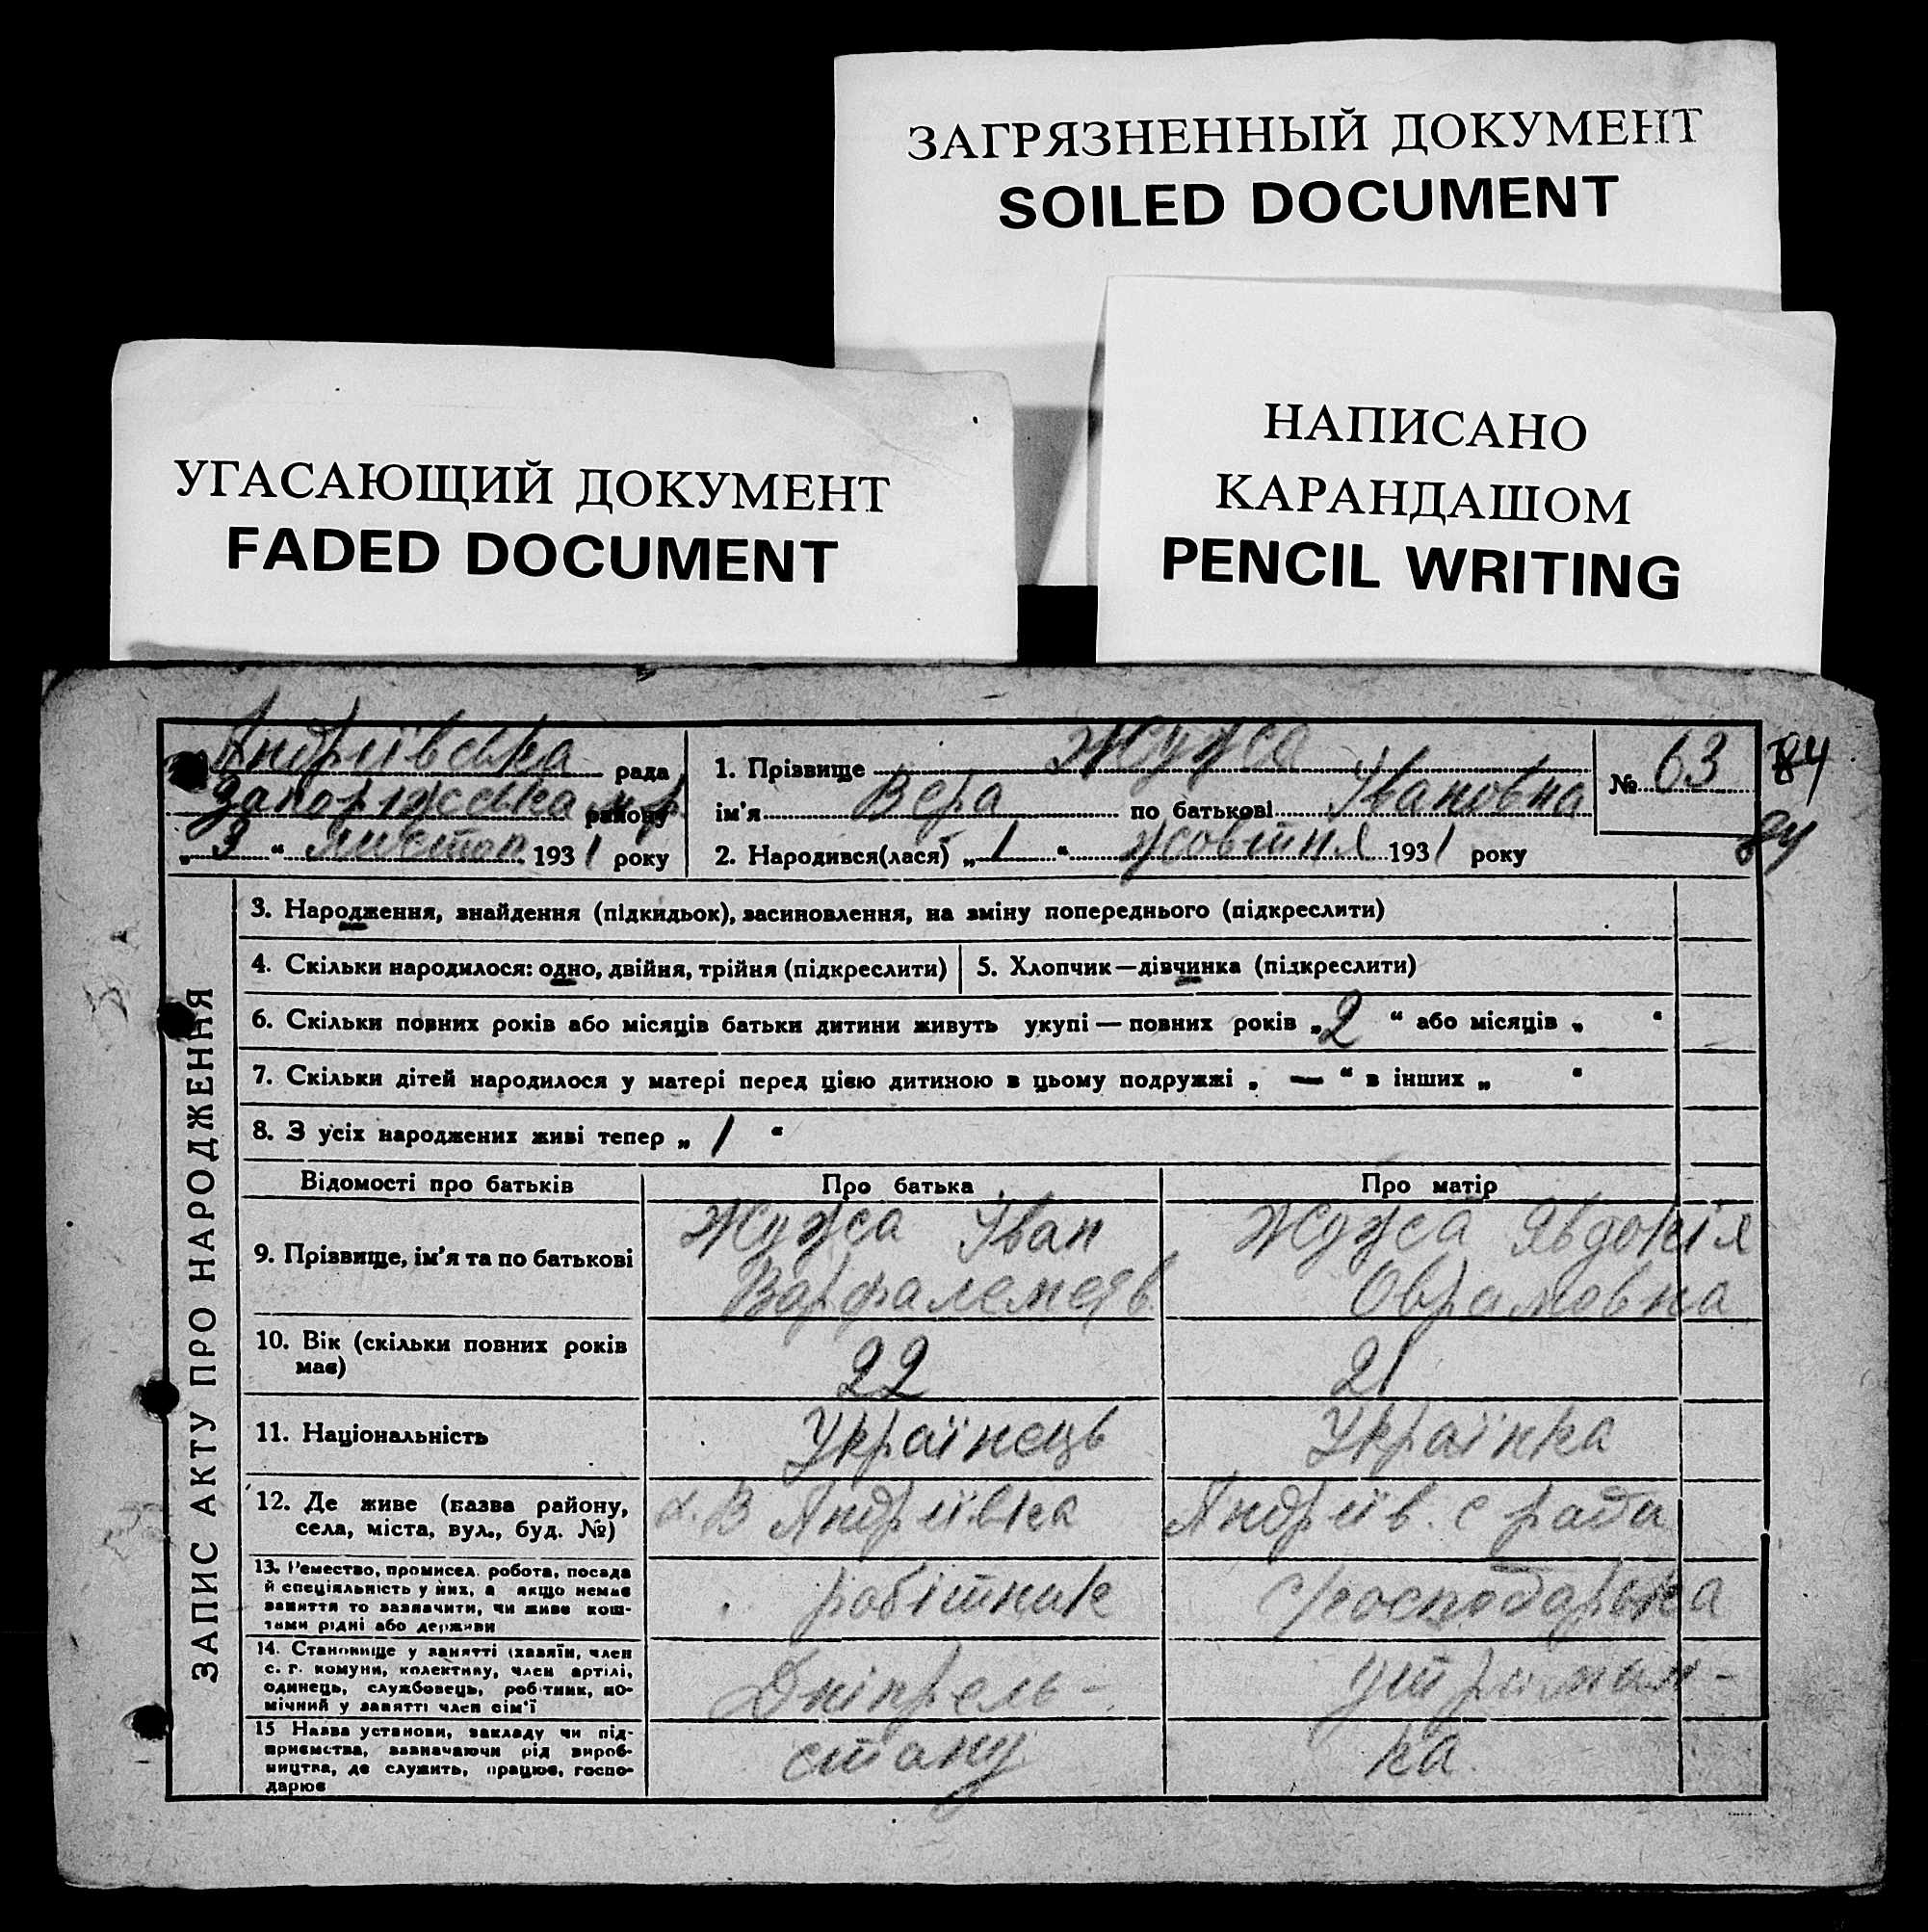 ЗАГРЯЗНЕННЫЙ ДОКУМЕНТ
SOILED DOCUMENT
НАПИСАНО
КАРАНДАШОМ
PENCIL WRITING
УГАСАЮЩИЙ ДОКУМЕНТ
FADED DOCUMENT
Андріївська рада
Запоріжська м.р. району
„ 3 “ листоп 1931 року
1. Прізвище Жужа
ім'я Вера по батькові Івановна
2. Народився(лася) „ 1 “ жовтня 1931 року
№ 63
84
ЗАПИС АКТУ ПРО НАРОДЖЕННЯ
3. Народження, знайдення (підкидьок), засиновлення, на зміну попереднього (підкреслити)
4. Скільки народилося: одно, двійня, трійня (підкреслити) 5. Хлопчик—дівчинка (підкреслити)
6. Скільки повних років або місяців батьки дитини живуть укупі — повних років „ 2 “ або місяців „ “
7. Скільки дітей народилося у матері перед цією дитиною в цьому подружжі „ — “ в інших „ “
8. З усіх народжених живі тепер „ 1 “
Відомості про батьків Про батька Про матір
9. Прізвище, ім'я та по батькові
Жужа Іван
Варфаламеяв
Жужа Явдокія
Оврамовна
10. Вік (скільки повних років
має)
22
21
11. Національність
Українець
Українка
12. Де живе (назва району,
села, міста, вул., буд. №)
В Андріївка
Андріїв. с ради
13. Ремество, промисел, робота, посада
й спеціяльність у них, а якщо немає
заняття то зазначити, чи живе кош-
тами рідні або держави
робітник
господарька
14. Становище у занятті (хазяїн, член
с. г. комуни, колективу, член артілі,
одинець, службовець, робітник, по-
мічний у занятті член сім'ї
Дніпрель-
утриман-
15 Назва установи, закладу чи під-
приємства, зазначаючи рід вироб-
ництва, де служить, працює, госпо-
дарює
стану
ка